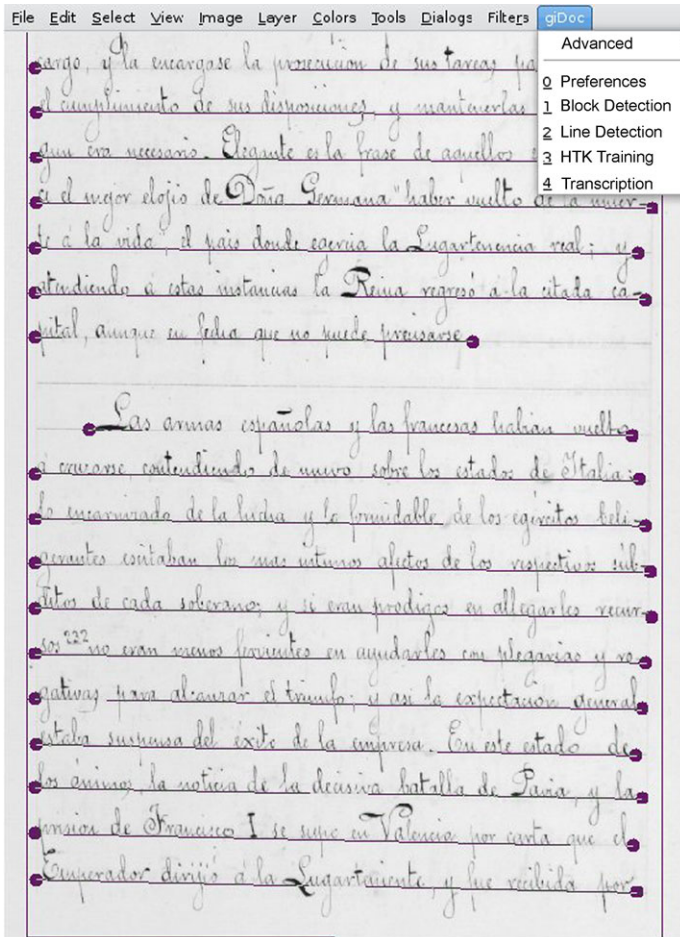 File Edit Select View Image Layer Colors Tools Dialogs Filters giDoc
Advanced
0 Preferences
1 Block Detection
2 Line Detection
3 HTK Training
4 Transcription
cargo, y la encargase la prosecucion de sus tareas pa
el cumplimiento de sus disposiciones, y mantenerlas
gun era necesario. Elegante es la frase de aquellos
es el mejor elojio de Doña Germana "haber vuelto de la muer-
te á la vida, el pais donde egercia la Lugartenencia real; y
atendiendo á estas instancias la Reina regresó á la citada ca-
pital, aunque en fecha que no puede precisarse.
Las armas españolas y las francesas habian vuelto
á cruzarse, contendiendo de nuevo sobre los estados de Italia:
lo encarnizado de la lucha y lo formidable de los egércitos beli-
gerantes escitaban los mas intimos afectos de los respectivos súb-
ditos de cada soberano; y si eran prodigos en allegarles recur-
sos 222 no eran menos fervientes en ayudarles con plegarias y ro-
gativas para alcanzar el triunfo; y asi la expectacion general
estaba suspensa del éxito de la empresa. En este estado de
los ánimos, la noticia de la decisiva batalla de Pavia, y la
prision de Francisco I se supo en Valencia por carta que el
Emperador dirijió á la Lugarteniente, y fue recibida por